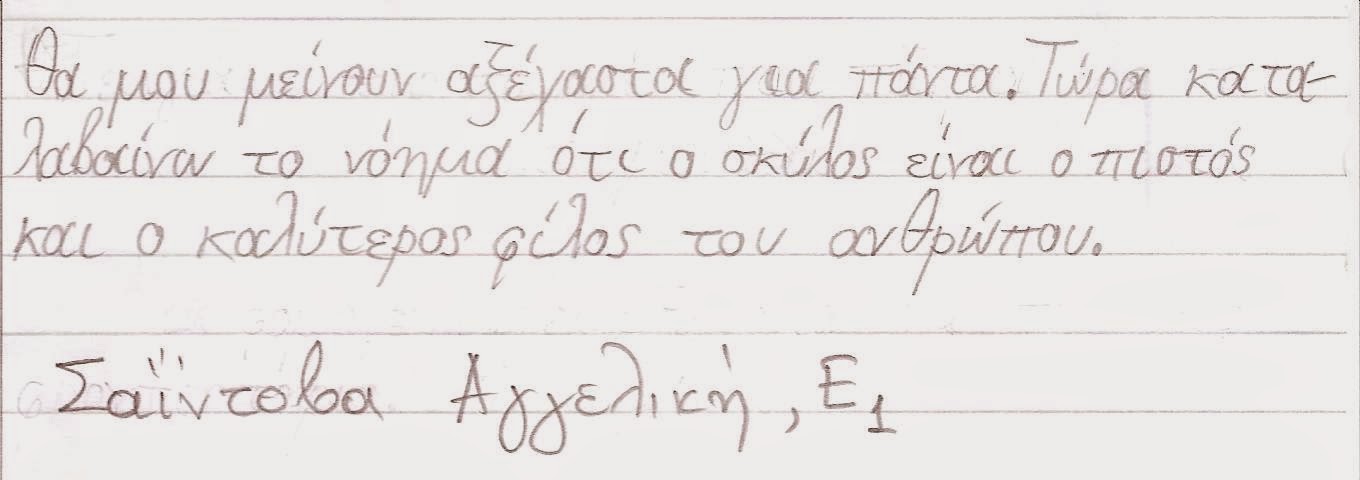 θα μου μείνουν αξέχαστα για πάντα. Τώρα κατα-
λαβαίνω το νόημα ότι ο σκύλος είναι ο πιστός
και ο καλύτερος φίλος του ανθρώπου.
Σαΐντοβα Αγγελική, Ε1